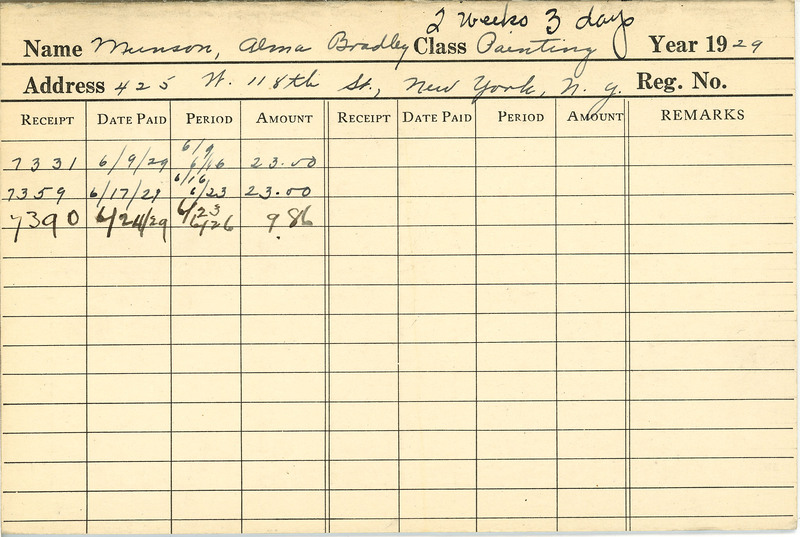 2 weeks 3 days
Name Munson, Alma Bradley Class Painting Year 1929
Address 425 W. 118th St., New York, N.Y. Reg. No.
RECEIPT DATE PAID PERIOD AMOUNT RECEIPT DATE PAID PERIOD AMOUNT REMARKS
6/9
7331 6/9/29 6/16 23.00
6/16
7359 6/17/29 6/23 23.00
6/23
7390 6/24/29 6/26 9.86